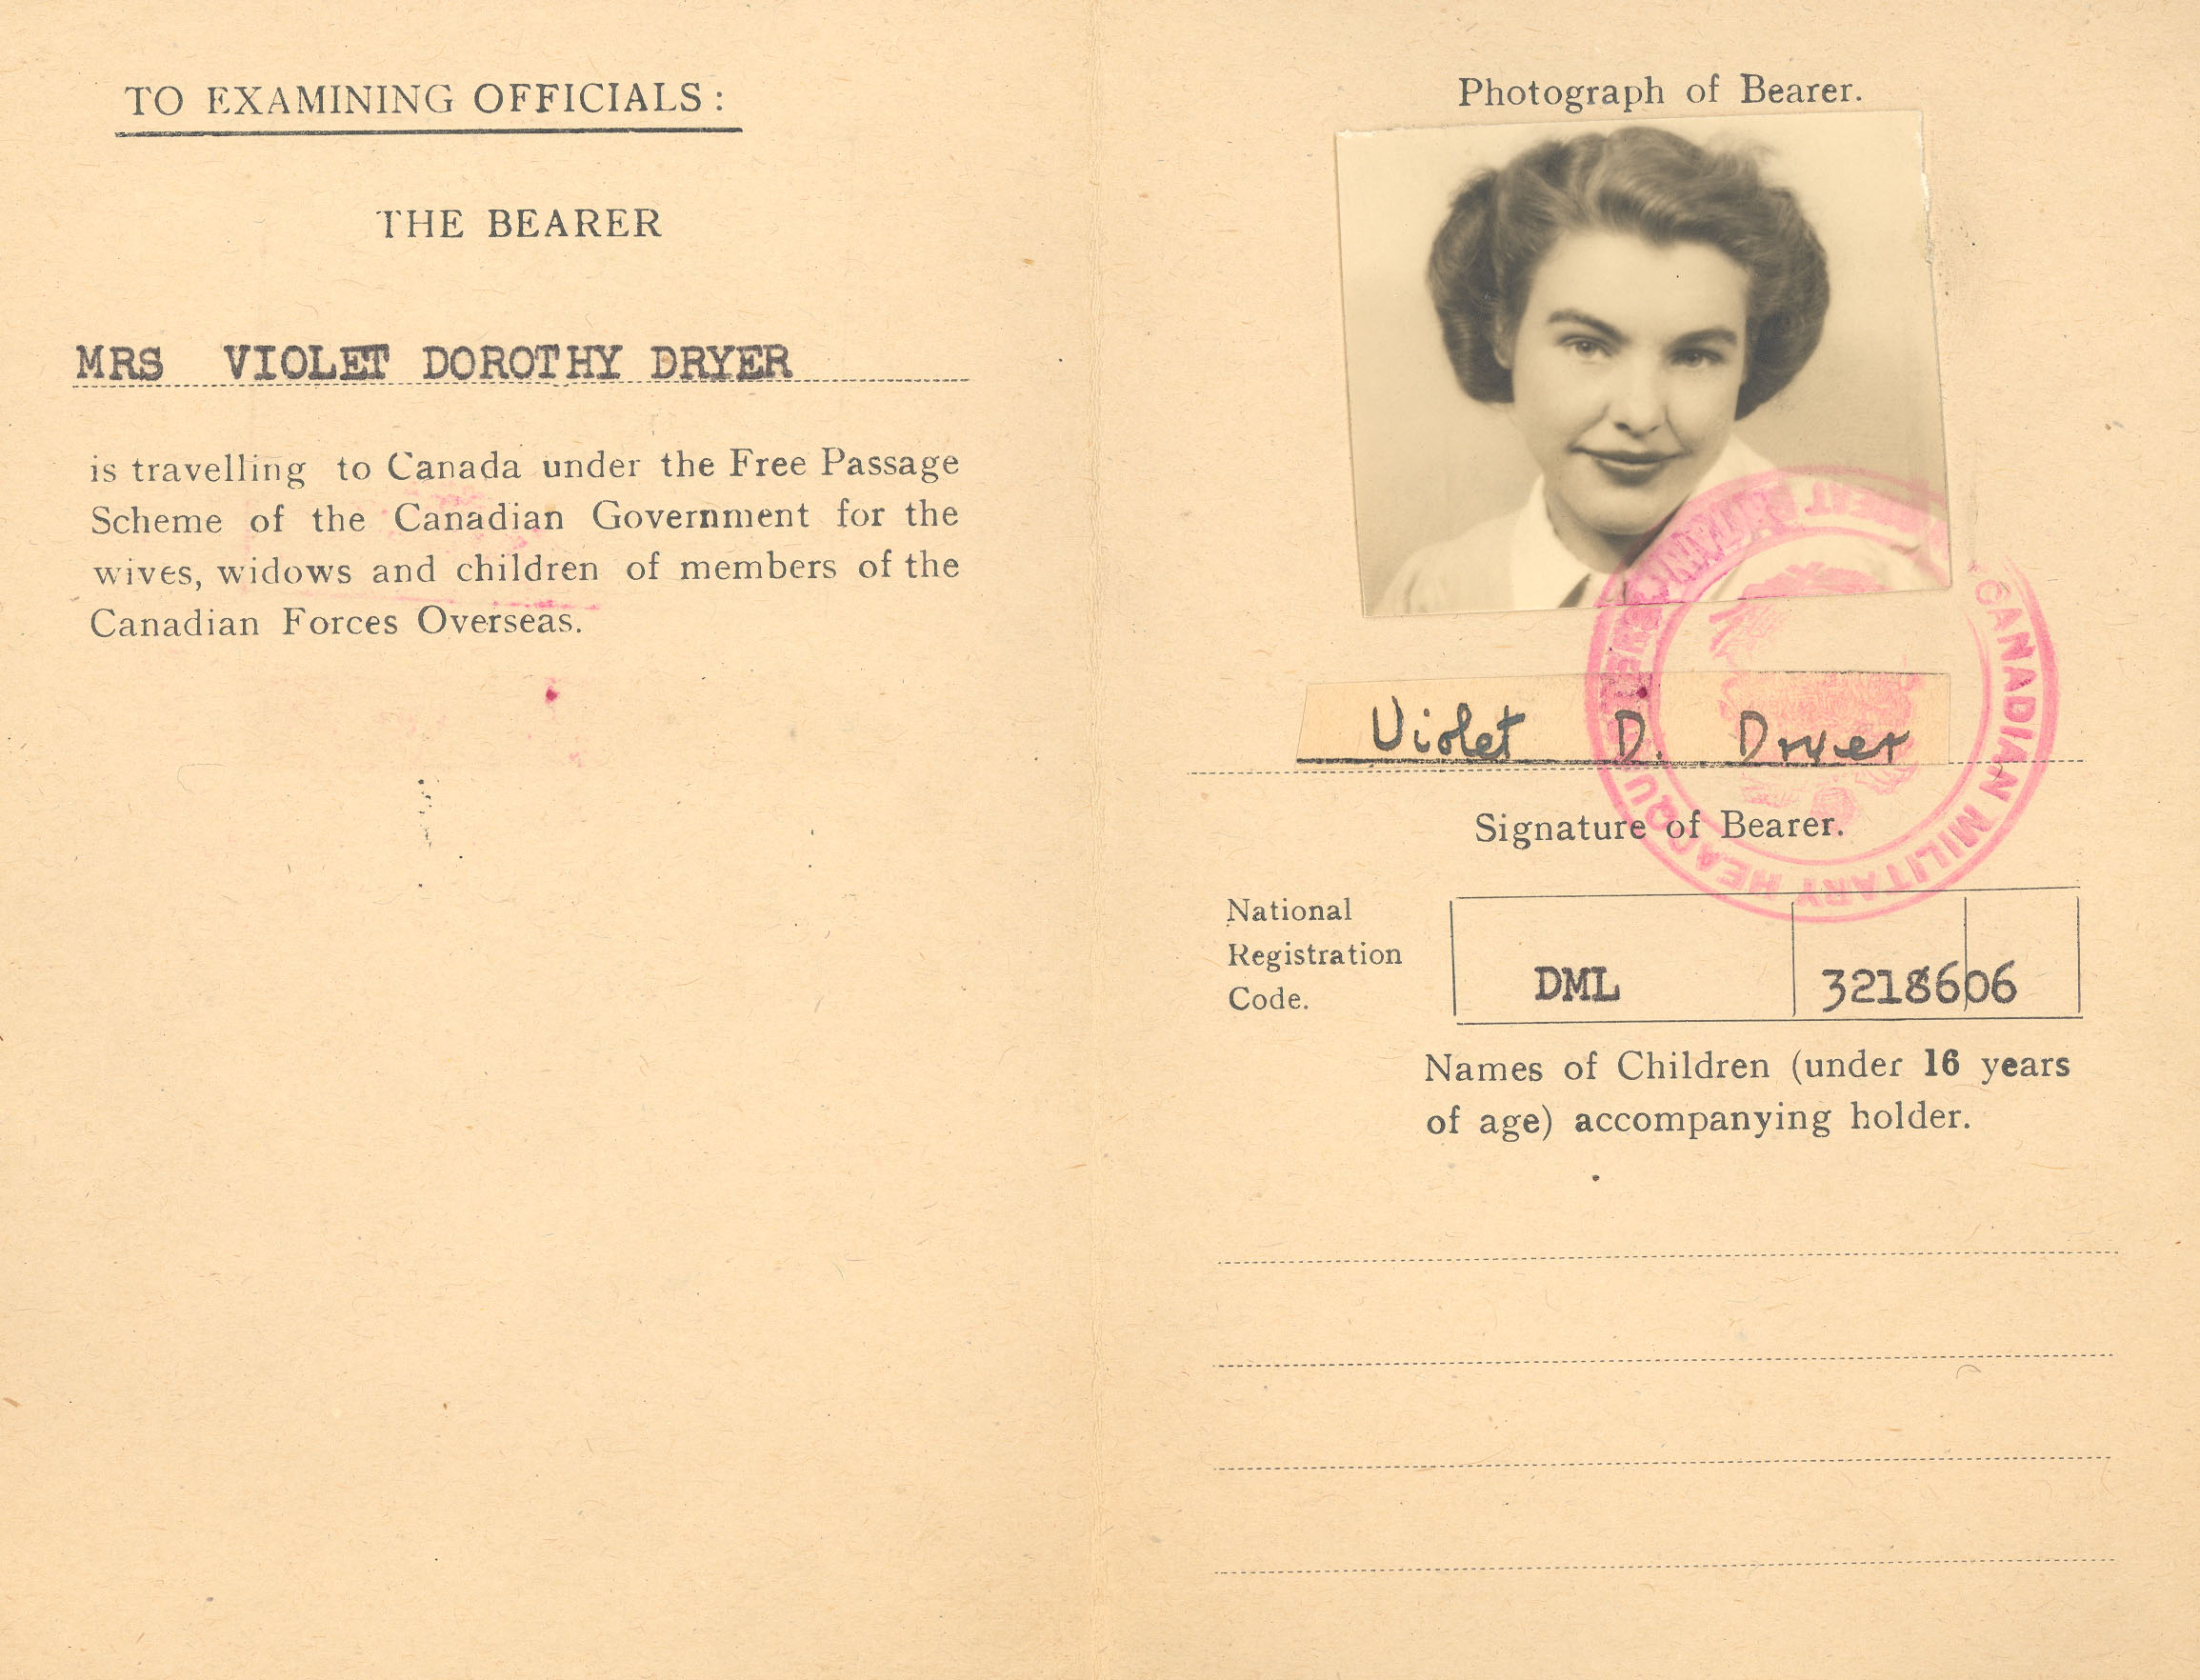 TO EXAMINING OFFICIALS:
THE BEARER
MRS VIOLET DOROTHY DRYER
is travelling to Canada under the Free Passage
Scheme of the Canadian Government for the
wives, widows and children of members of the
Canadian Forces Overseas.
Photograph of Bearer.
Violet D. Dryer
Signature of Bearer.
CANADIAN MILITARY HEADQUARTERS
National
Registration
Code.
DML 3218606
Names of Children (under 16 years
of age) accompanying holder.